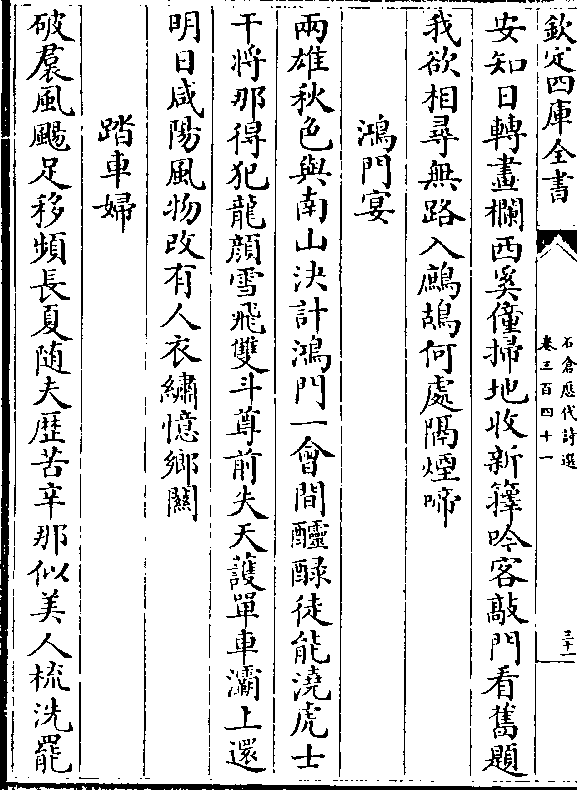 欽定四庫全書
石倉歷代詩選
卷三百四十一
三十一
安知日轉畫欄西奚僮掃地收新籜吟客敲門看舊題
我欲相尋無路入鷓鴣何處隔煙啼
鴻門宴
兩雄秋色與南山決計鴻門一會間醽醁徒能澆虎士
干將那得犯龍顔雪飛雙斗尊前失天護單車灞上還
明日咸陽風物改有人衣繡憶鄉關
踏車婦
破裠風颺足移頻長夏随夫歴苦辛那似美人梳洗罷